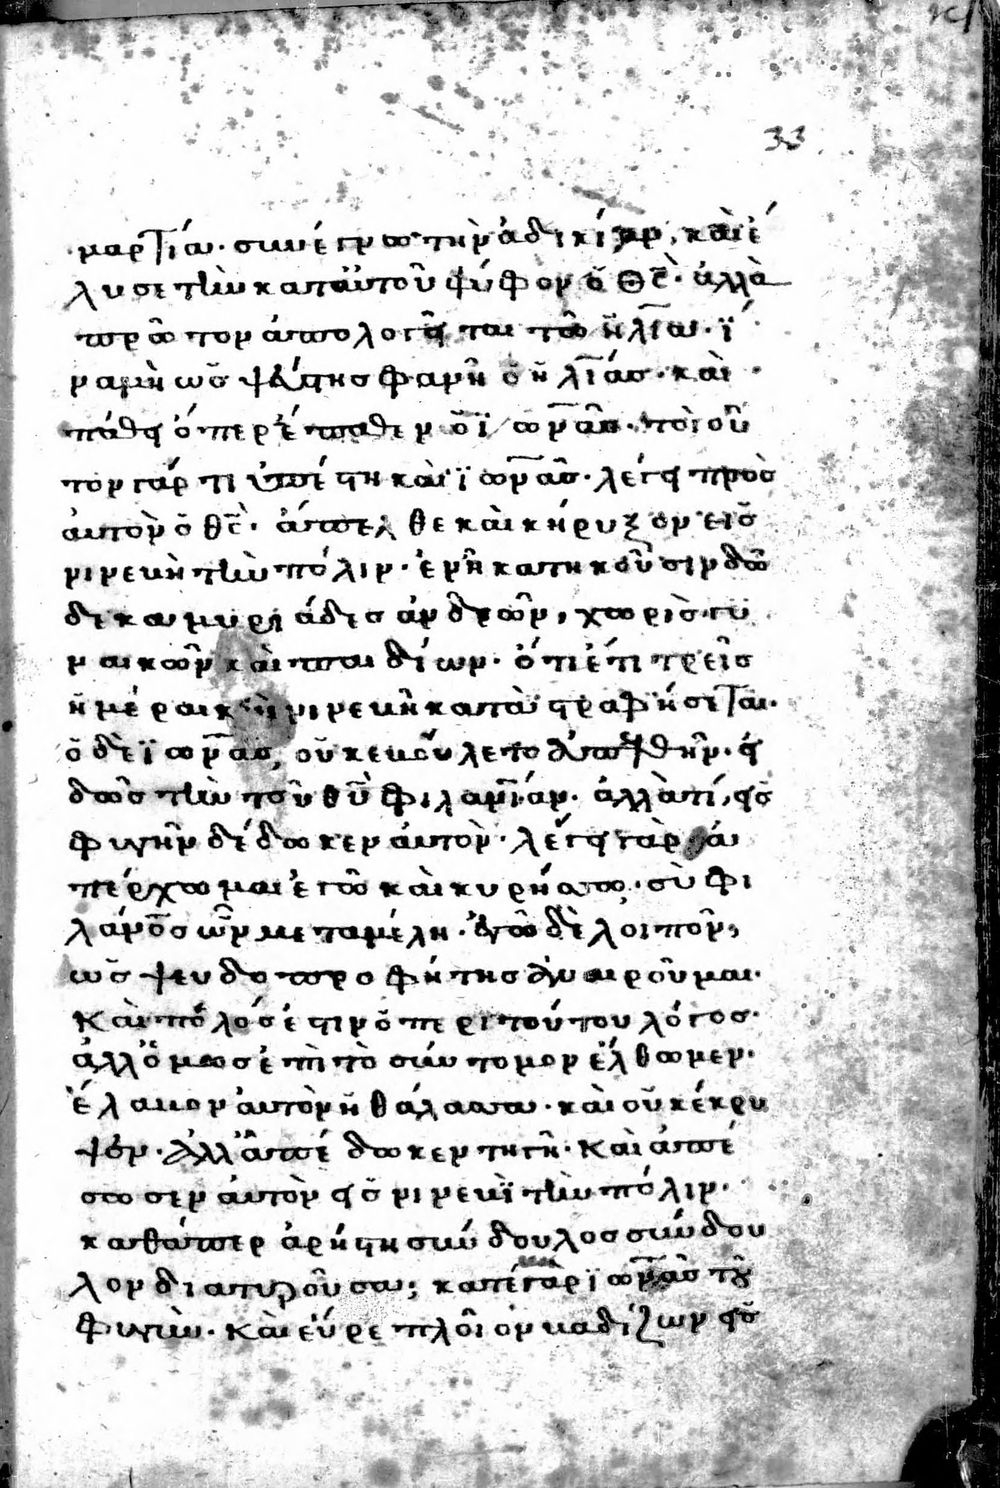 33
μαρτίαν· συνέγνω τὴν ἀδικίαν, καὶ ἔ
λυσε τὴν κατ αὐτοῦ ψύφον ὁ θς̅· ἀλλὰ
πρῶτον ἀπολογεῖται τῶ ἠλία· ἵ
να μὴ ὡς ψεύστης φανῆ ὁ ἠλίας· καὶ
πάθει ὅπερ ἔπαθεν ὁ ϊωνᾶς· ποὶοῦ
τον γάρ τι ὑπέστη καὶ ϊωνᾶς· λέγει πρὸς
αὐτὸν ὁ θς̅· ἄπελθε καὶ κήρυξον εἰς
νινευὴ τὴν πόλιν· ἐν ἧ κατηκοῦσιν δώ
δεκα μυριάδες ἀνδρῶν, χωρὶς γυ
ναικῶν καὶ παιδίων· ὅτι ἔτι τρεῖς
ἡμέραι καὶ ἡ νινευῆ καταστραφήσεται·
ὁ δὲ ϊωνᾶς, οὐκ ἐβούλετο ἀπελθεῖν· εἰ
δὼς τὴν τοῦ θυ̅ φιλανίαν· ἀλλὰ τί, εἰς
φυγῆν δέδωκεν ἀυτὸν· λέγει γὰρ ἀ
πέρχομαι ἐγὼ καὶ κυρήσσω· σὺ φι
λάνος ὢν μεταμέλη· ἐγὼ δὲ λοιπὸν,
ὡς ψευδοπροφήτης ἀναιροῦμαι·
Καὶ πόλός ἐστιν ὁ περὶ τούτου λόγος·
ἀλλ ὅμως ἐπὶ τὸ σύντομον ἔλθωμεν·
ἔλαβον ἀυτὸν ἡ θάλασσα· καὶ οὐκ ἔκρυ
ψεν· ἀλλ ἀπέδωκεν τῆ γῆ· Καὶ ἀπέ
σωσεν ἀυτὸν εἰς νινευῒ τὴν πόλιν·
καθάπερ ἀρήστη σύνδουλος σύνδου
λον διασώζουσα; κατέ γὰρ ϊωνᾶς τοῦ
φυγεῖν· Καὶ εὗρε πλοῖον βαδίζων εἰς